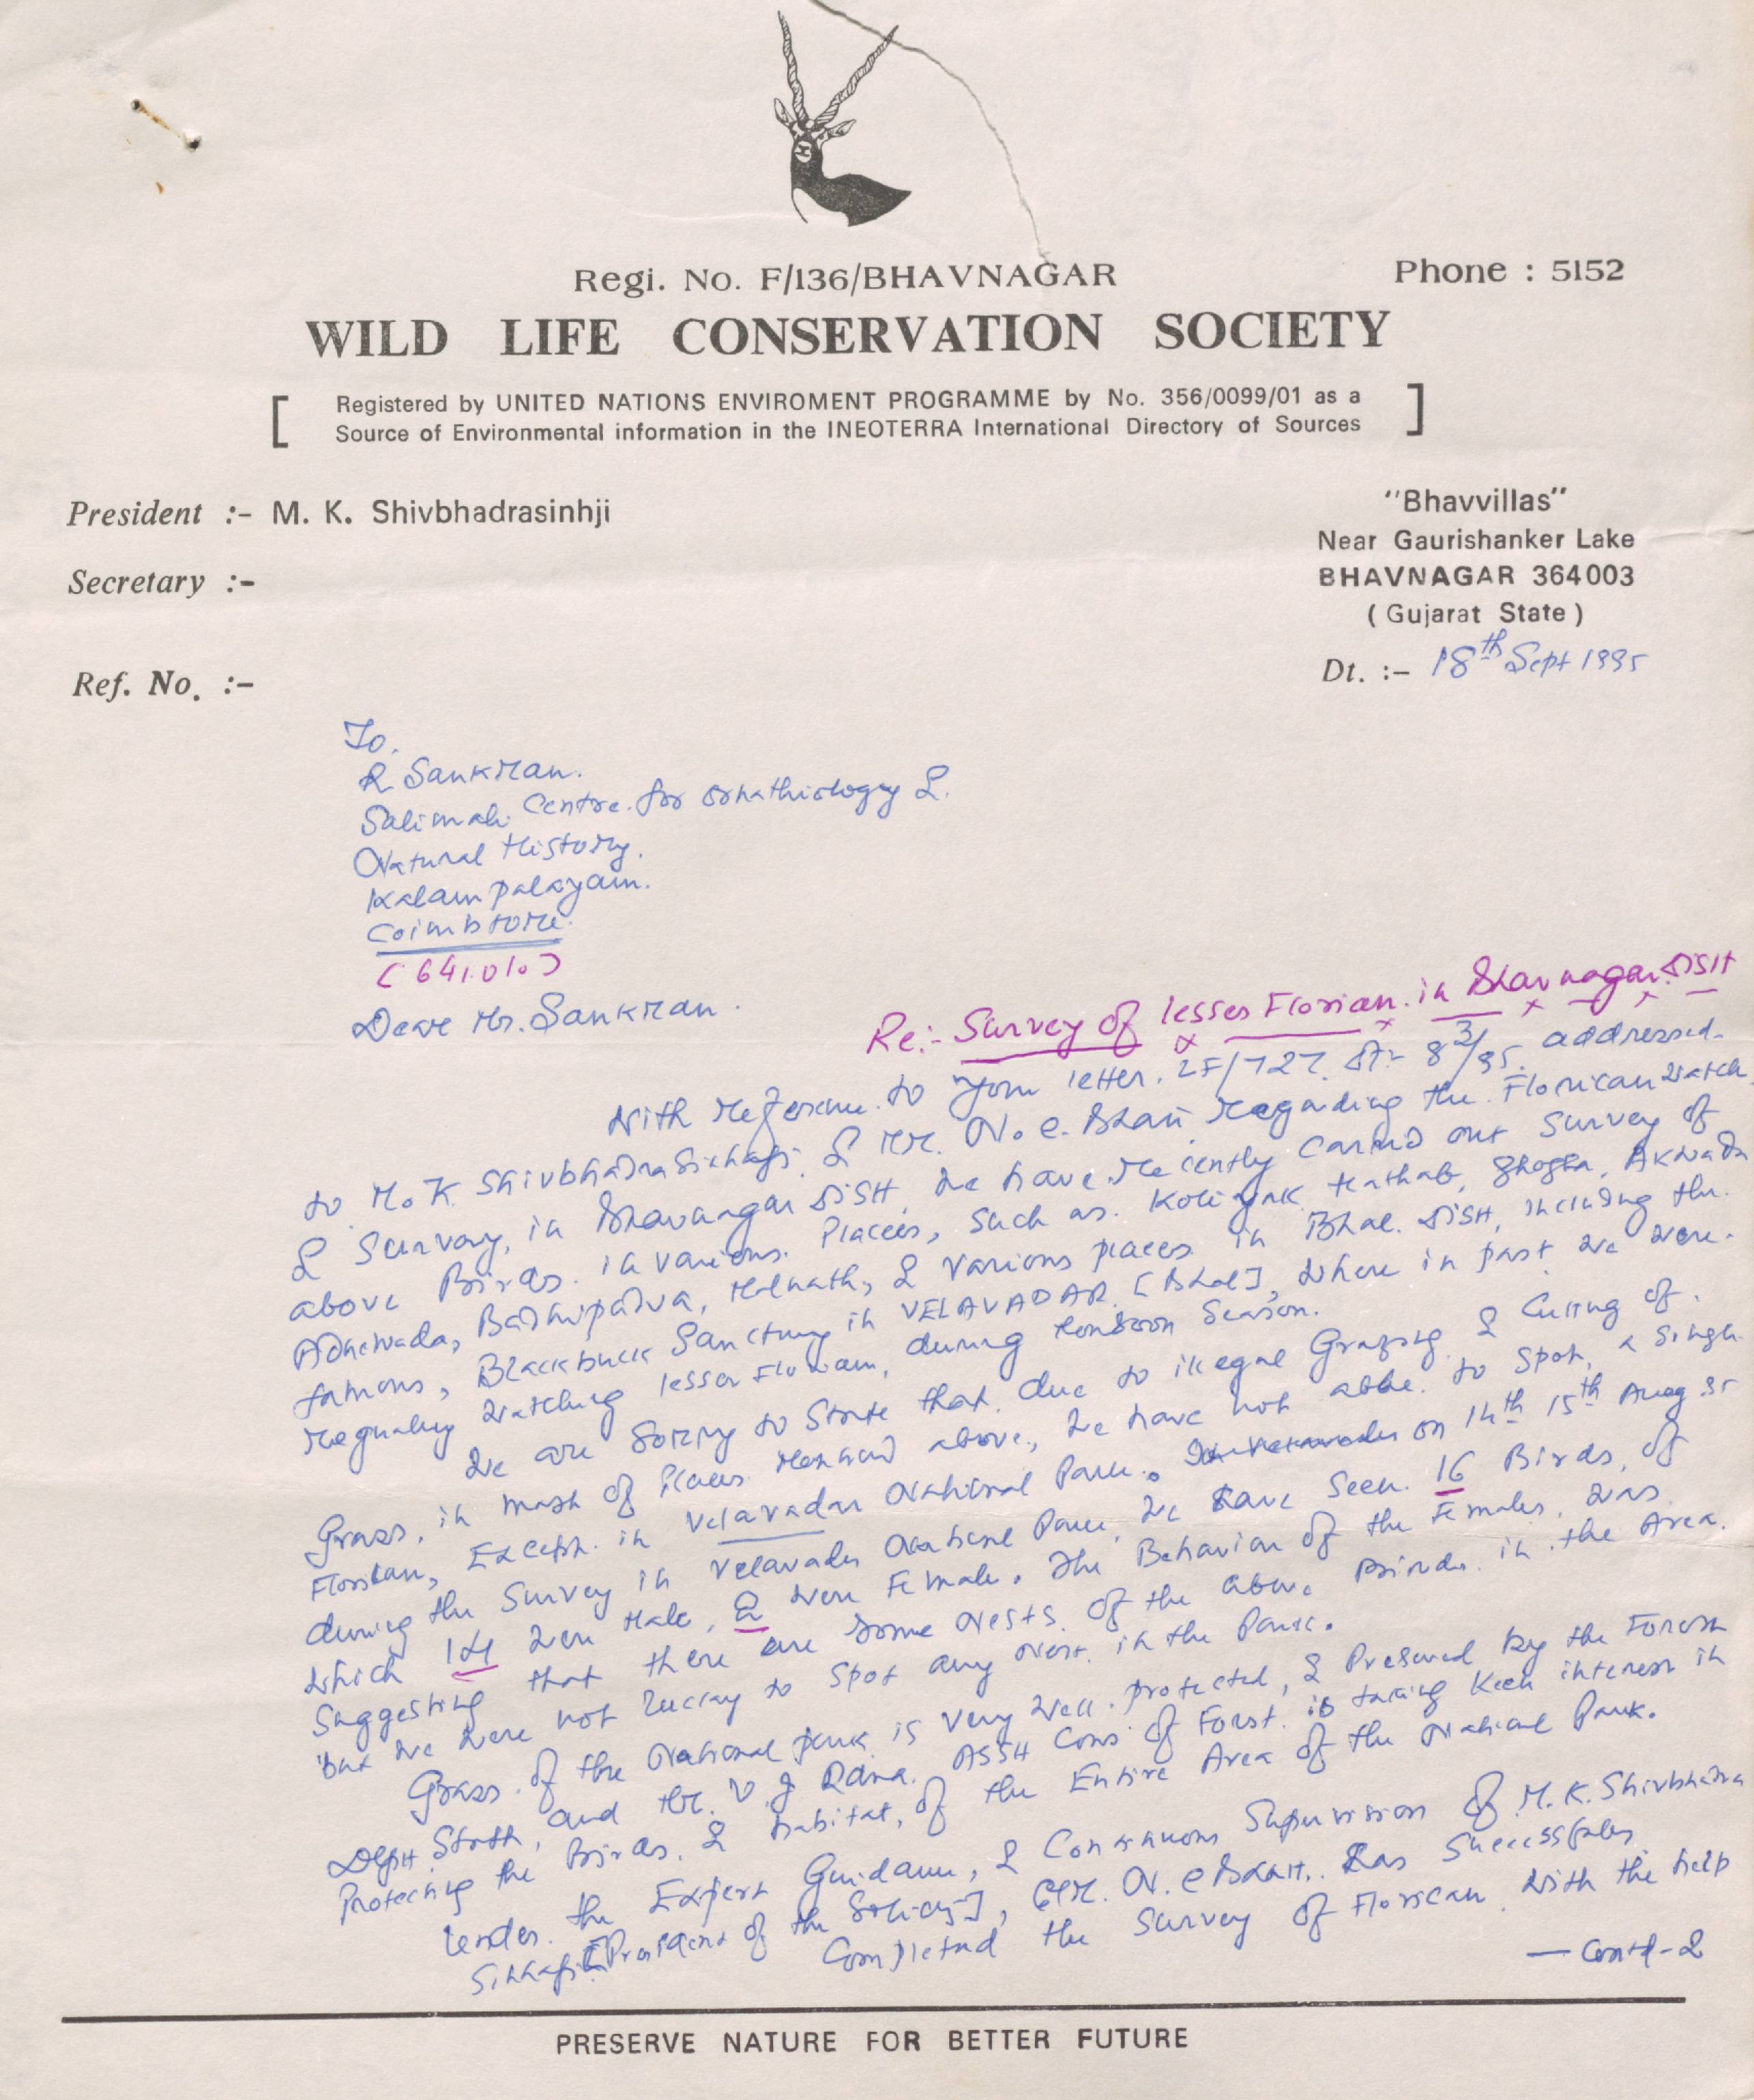 Regi. No. F/136/BHAVNAGAR
Phone : 5152
WILD LIFE CONSERVATION SOCIETY
[ Registered by UNITED NATIONS ENVIROMENT PROGRAMME by No. 356/0099/01 as a
Source of Environmental information in the INEOTERRA International Directory of Sources ]
President :- M. K. Shivbhadrasinhji
"Bhavvillas"
Near Gaurishanker Lake
Secretary :-
BHAVNAGAR 364003
( Gujarat State )
Ref. No. :-
Dt. :- 18th Sept 1995
To,
R Sankran.
Salimali Centre for Ornathiology &
Natural History.
Kalampalayam.
Coimbtore.
(641.010)
Deare Mr. Sankran.
Re:- Survey of lesser Florian in Bhavnagar Distt
With reference to your letter. LF/727 Dt- 8/3/95. addressed
to M.K Shivbhadra Sinhaji & Mr. N. C. Bhatt regarding the Florican watch
& Survay, in Bhavangar Distt, we have recently carried out survey of
above Birds. in various Places, such as. Koliyak Hathab, Ghogha, Akwada
Adhewada, Badhipadva, Malnath, & various places in Bhal. Distt, including the
famous, Blackbuck Sanctury in VELAVADAR [Bhal], where in past we were
regularly watching lesser Floricam, during Monsoon Season.
We are Sorry to State that due to illegal Grazing & Cutting of
Grass, in most of Places above, we have not able to Spot, a Single
Florican, Except in Velavadar National Park. on 14th 15th Aug 95
during the Survey in Velavadar National Park, we have Seen 16 Birds, of
which 14 were Male, 2 were Female. The Behavior of the Females, was
Suggesting that there are Some Nests of the above Birds in the Area.
but we were not lucky to Spot any Nest in the Park.
Grass of the National park is very well protected, & Preserved by the Forest
Deptt Staff, and Mr. V. J Rana. Asstt Cons of Forst is taking Keen interest in
Protecting the Birds. & habitat, of the Entire Area of the National Park.
Under the Expert Guidance, & Continuous Supervision of M.K. Shivbhadra
Sinhaji [President of the Society], Mr. N. C Bhatt. has Successfuley
Completed the Survey of Florican with the help
— Contd-2
PRESERVE NATURE FOR BETTER FUTURE